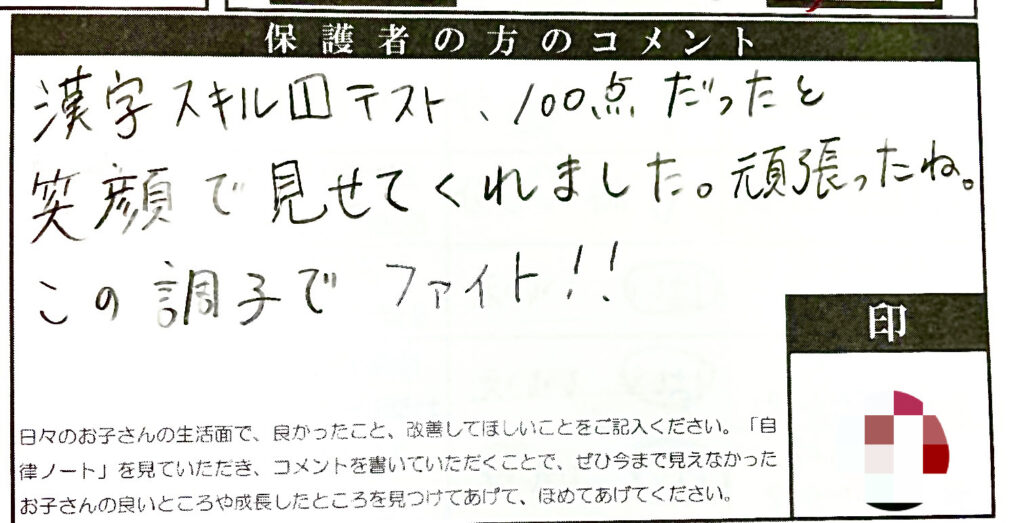 保護者の方のコメント
漢字スキル⑪テスト、100点だったと
笑顔で見せてくれました。頑張ったね。
この調子でファイト!!
印
日々のお子さんの生活面で、良かったこと、改善してほしいことをご記入ください。「自
律ノート」を見ていただき、コメントを書いていただくことで、ぜひ今まで見えなかった
お子さんの良いところや成長したところを見つけてあげて、ほめてあげてください。